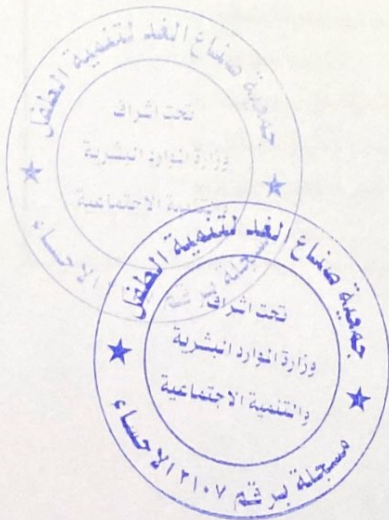 جمعية صناع الغد لتنمية الطفل
تحت اشراف
وزارة الموارد البشرية
والتنمية الاجتماعية
مسجلة برقم
الاحساء
جمعية صناع الغد لتنمية الطفل
تحت اشراف
وزارة الموارد البشرية
والتنمية الاجتماعية
مسجلة برقم ٢١٠٧ الاحساء